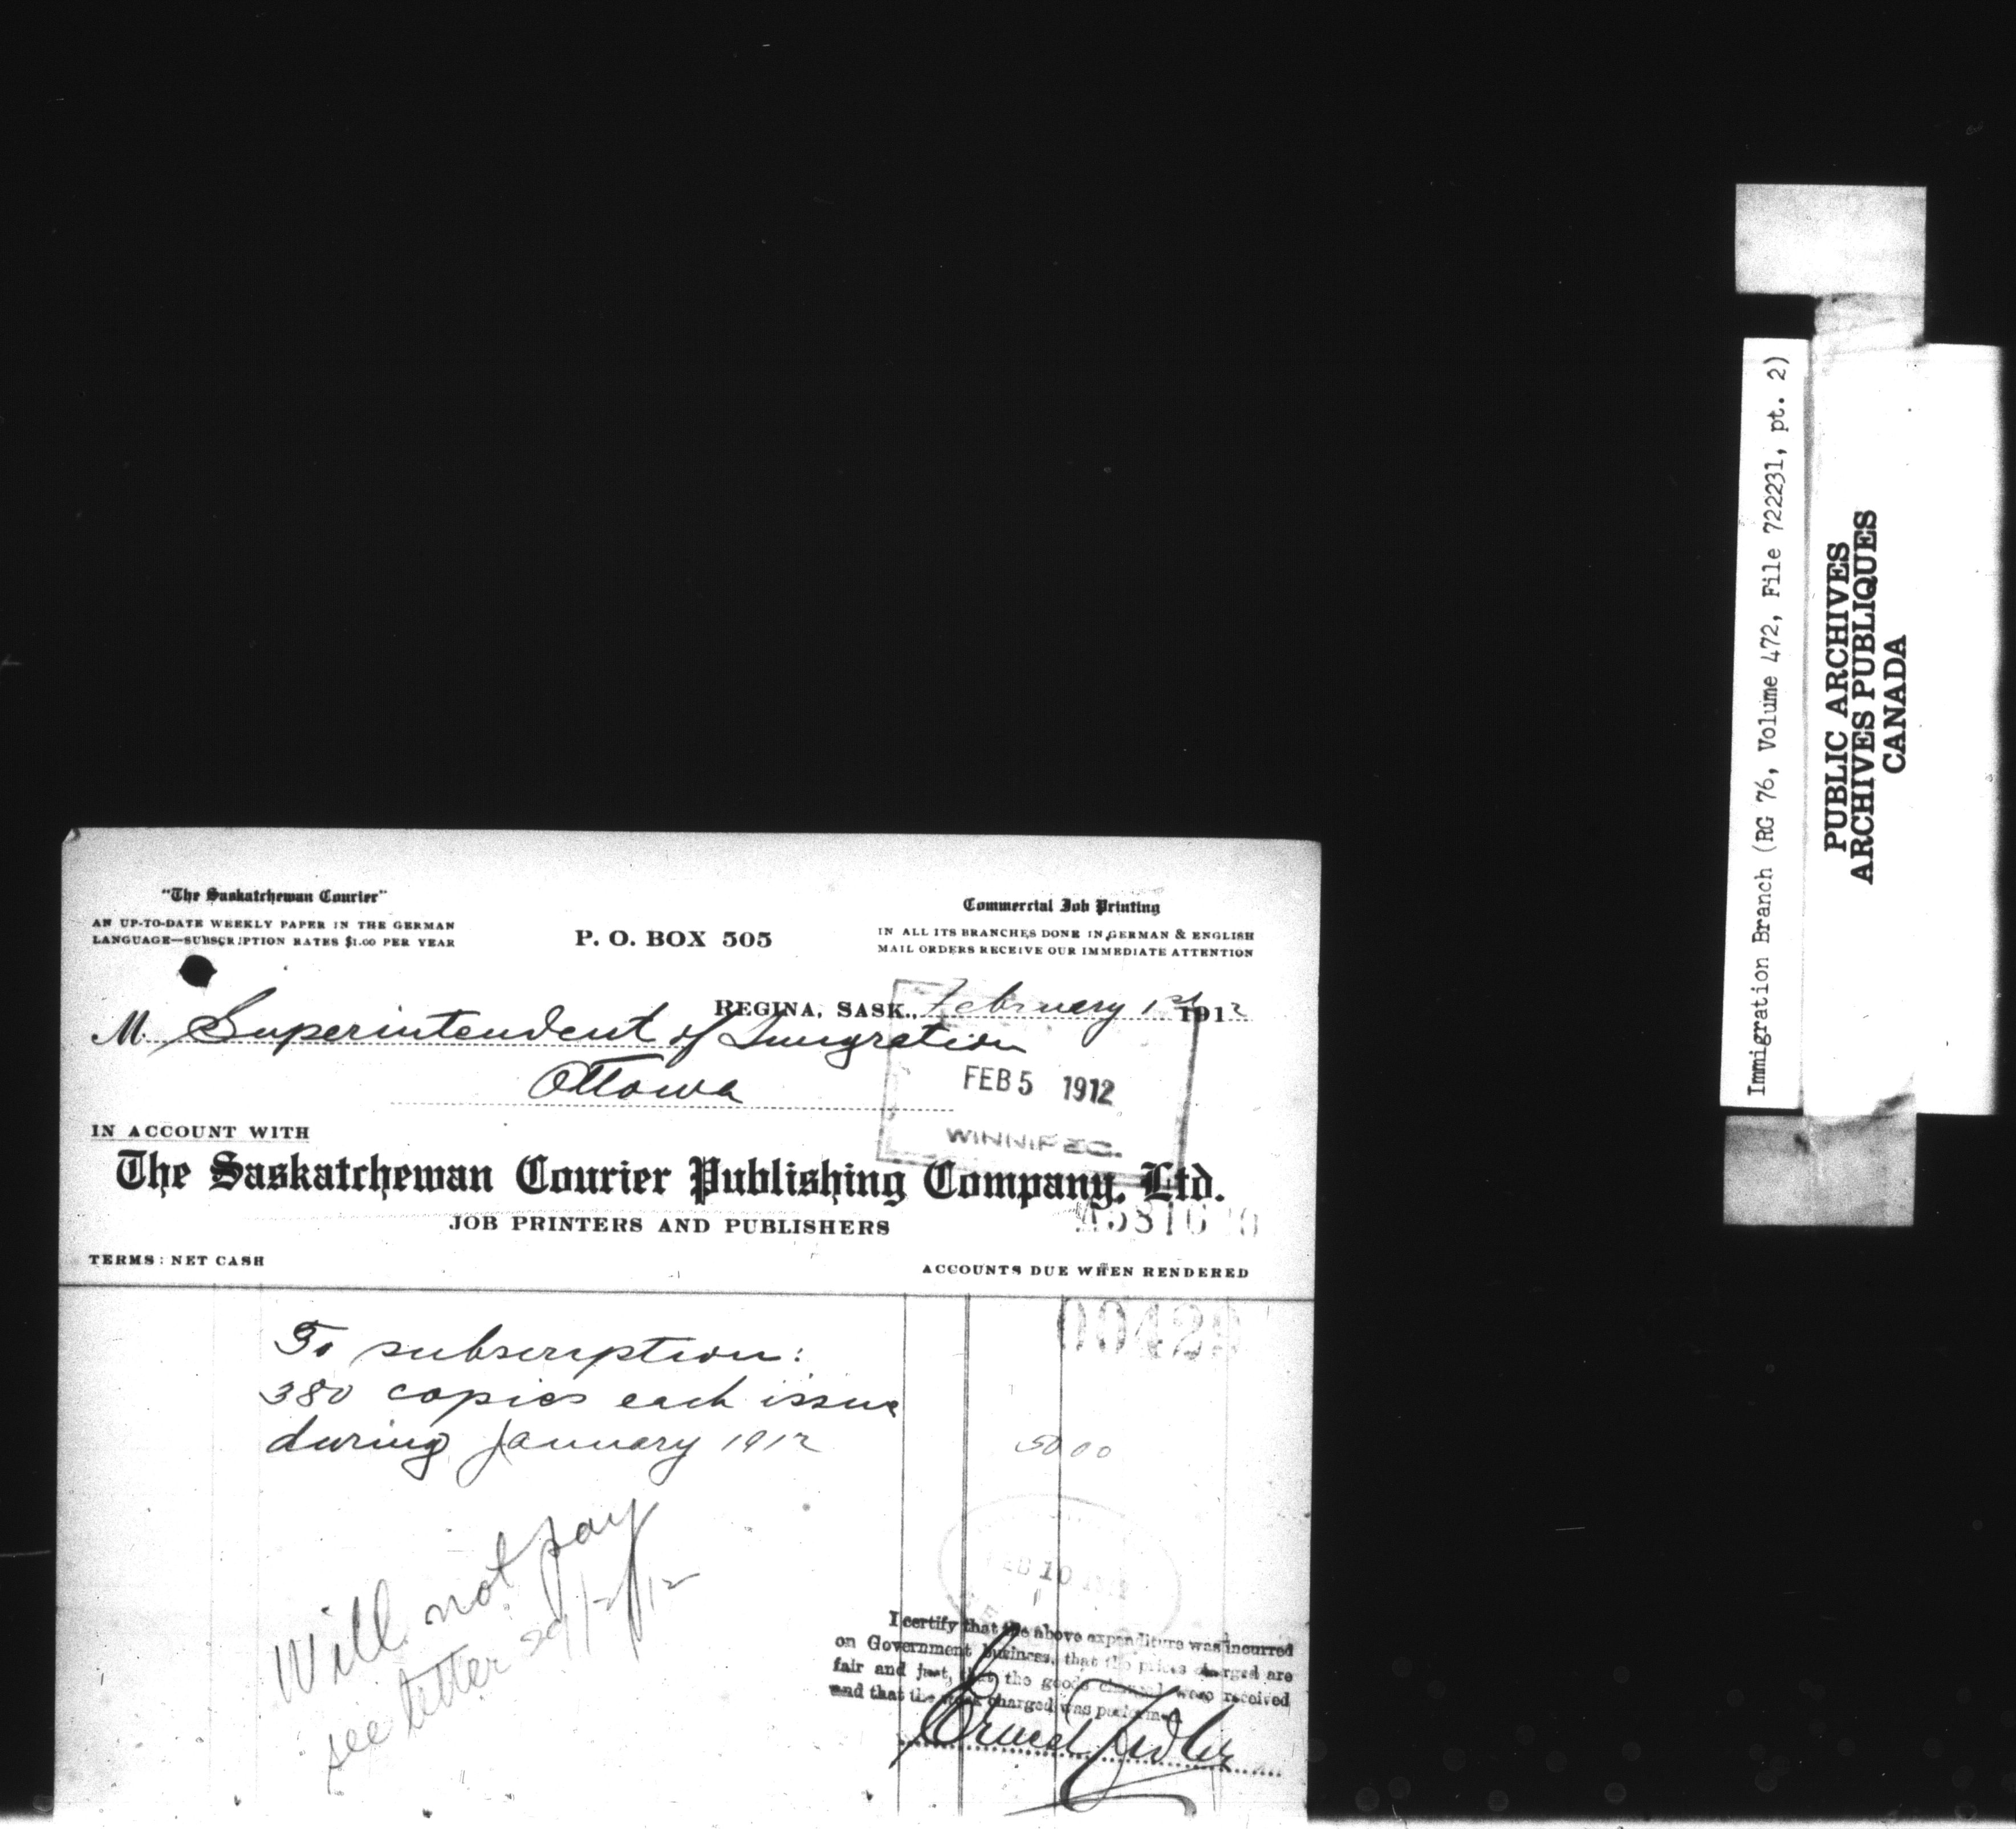 "The Saskatchewan Courier"
AN UP-TO-DATE WEEKLY PAPER IN THE GERMAN
LANGUAGE—SUBSCRIPTION RATES $1.00 PER YEAR
P. O. BOX 505
Commercial Job Printing
IN ALL ITS BRANCHES DONE IN GERMAN & ENGLISH
MAIL ORDERS RECEIVE OUR IMMEDIATE ATTENTION
REGINA, SASK., February 1st 1912
M. Superintendent of Imigration
Ottowa
FEB 5 1912
WINNIPEG.
IN ACCOUNT WITH
The Saskatchewan Courier Publishing Company, Ltd.
JOB PRINTERS AND PUBLISHERS
TERMS: NET CASH
ACCOUNTS DUE WHEN RENDERED
To subscription:
380 copies each issue
during January 1912
50 00
Will not pay
see letter 29/2/12
I certify that the above expenditure was incurred
on Government business, that the prices charged are
fair and just, that the goods charged were received
and that the work charged was performed.
Immigration Branch (RG 76, Volume 472, File 722231, pt. 2)
PUBLIC ARCHIVES
ARCHIVES PUBLIQUES
CANADA